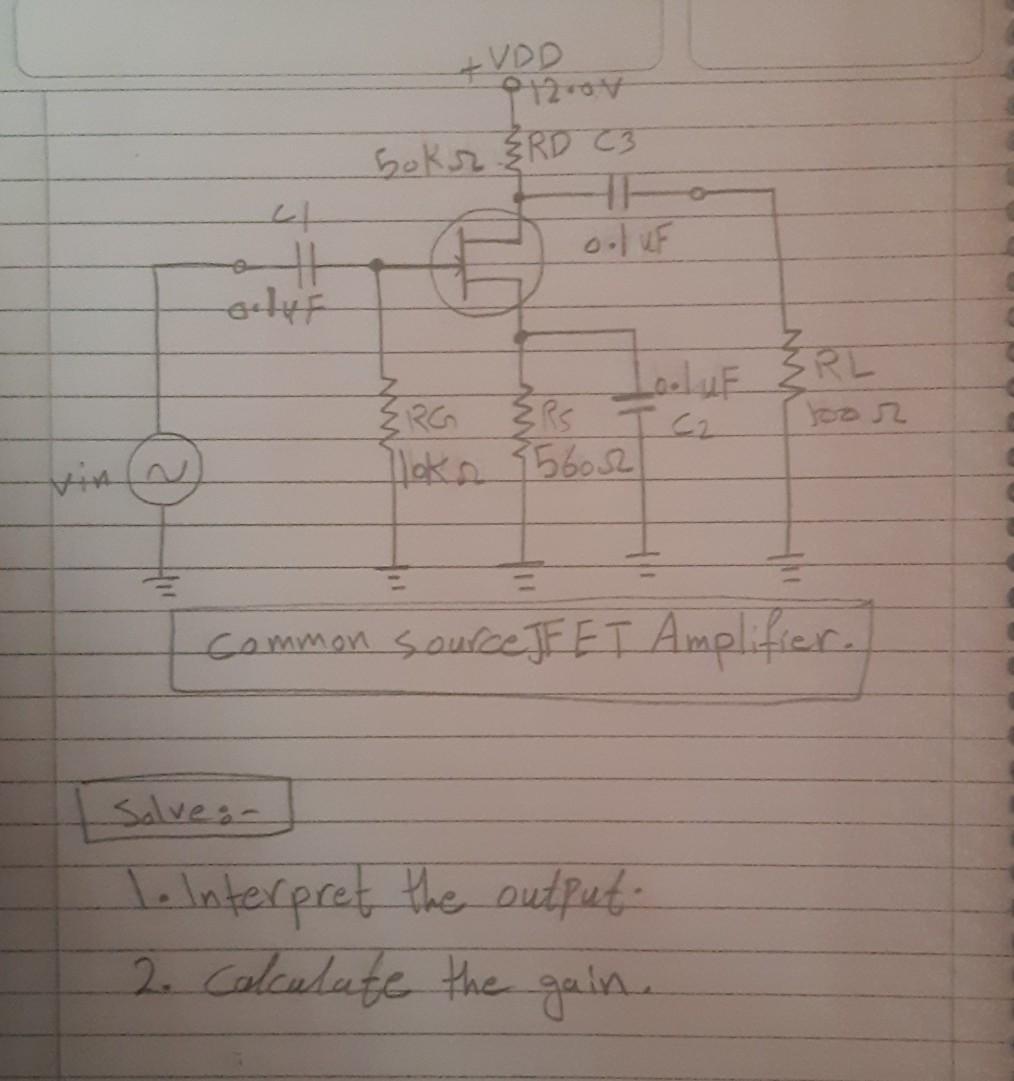 +VDD
12.0V
50KΩ RD C3
C1
0.1uF
0.1uF
RG
10KΩ
RS
560Ω
0.1uF
C2
RL
100Ω
Vin
Common source JFET Amplifier.
Solve:-
1. Interpret the output.
2. Calculate the gain.